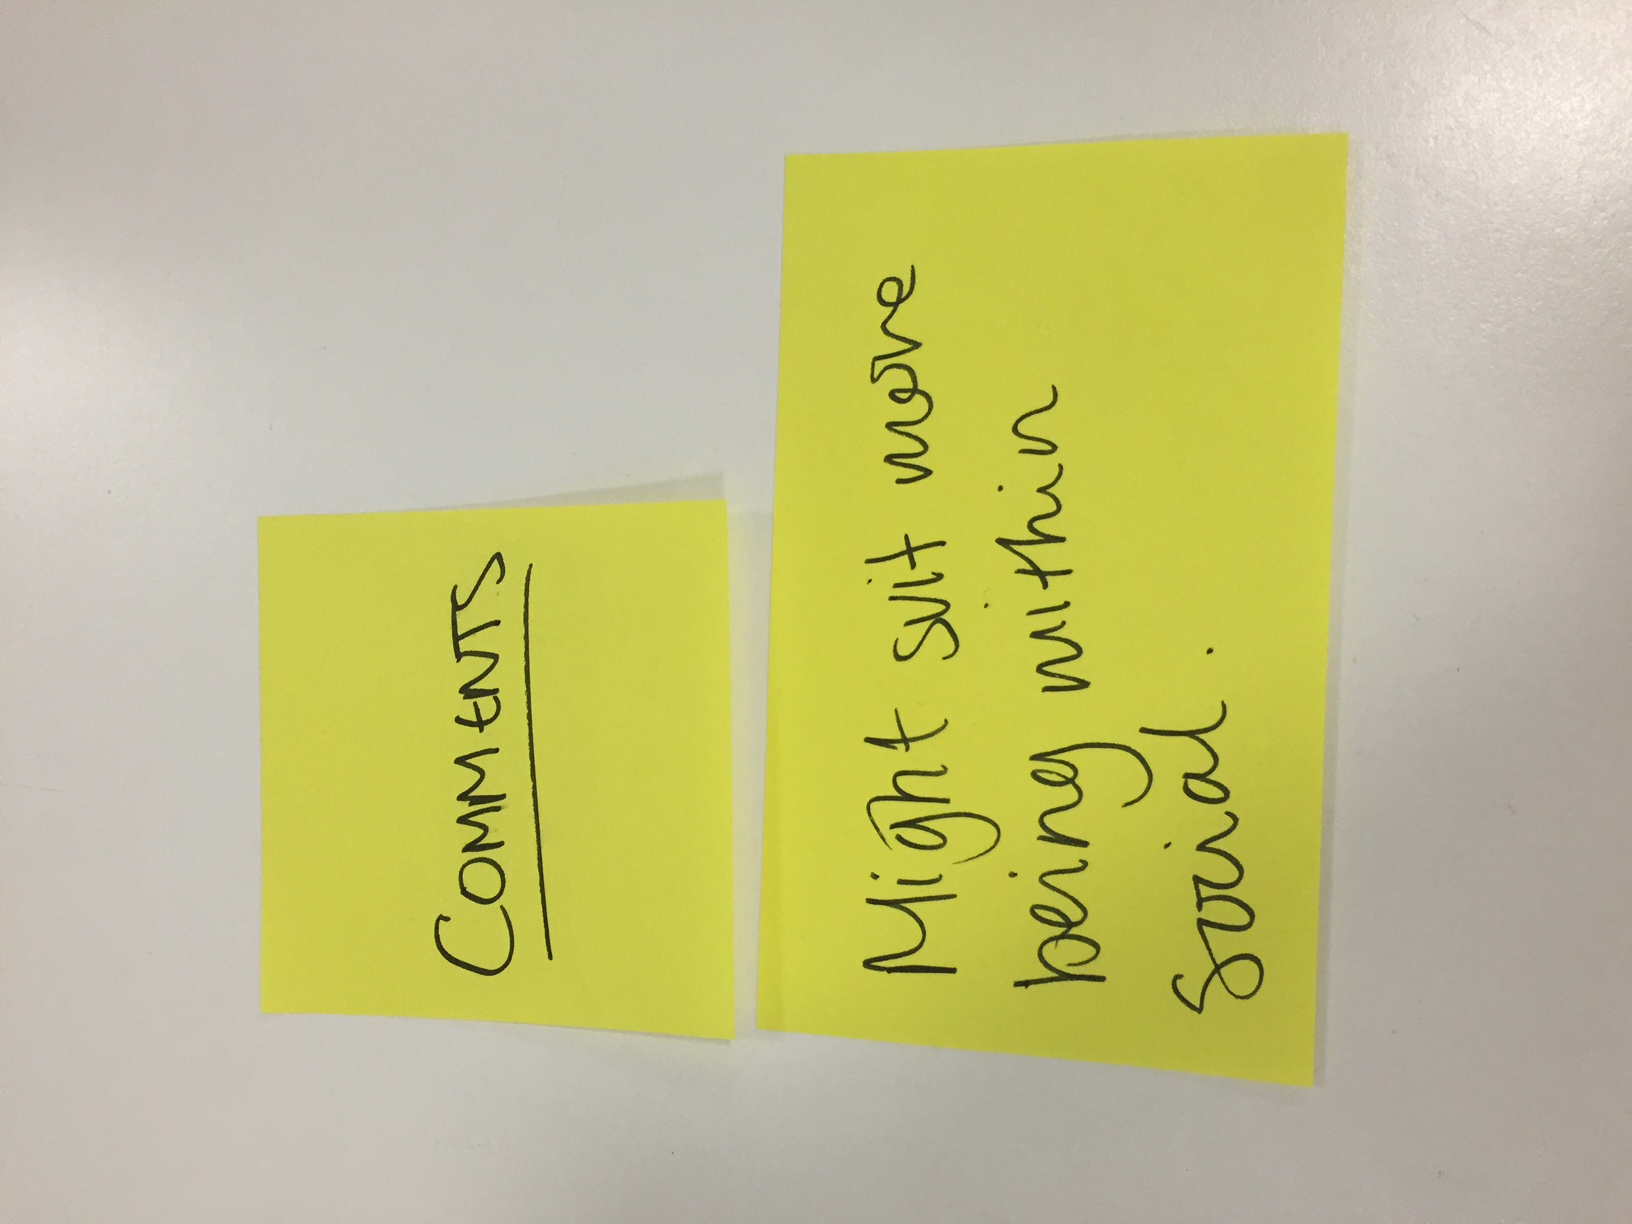 COMMENTS
Might suit more
being within
social.